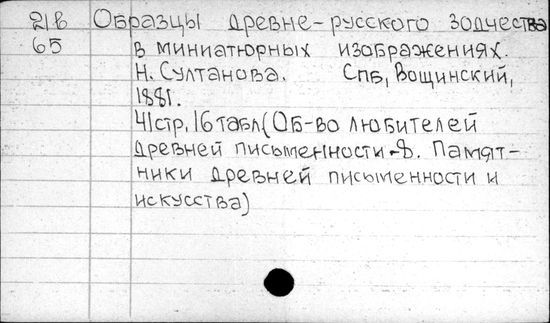 21 8 Образцы древне-русского зодчества
65 в миниатюрных изображениях.
Н. Султанова. Спб, Вощинский,
1881.
41стр, 16 табл (Об-во любителей
древней письменности-8. Памят-
ники древней письменности и
искусства)